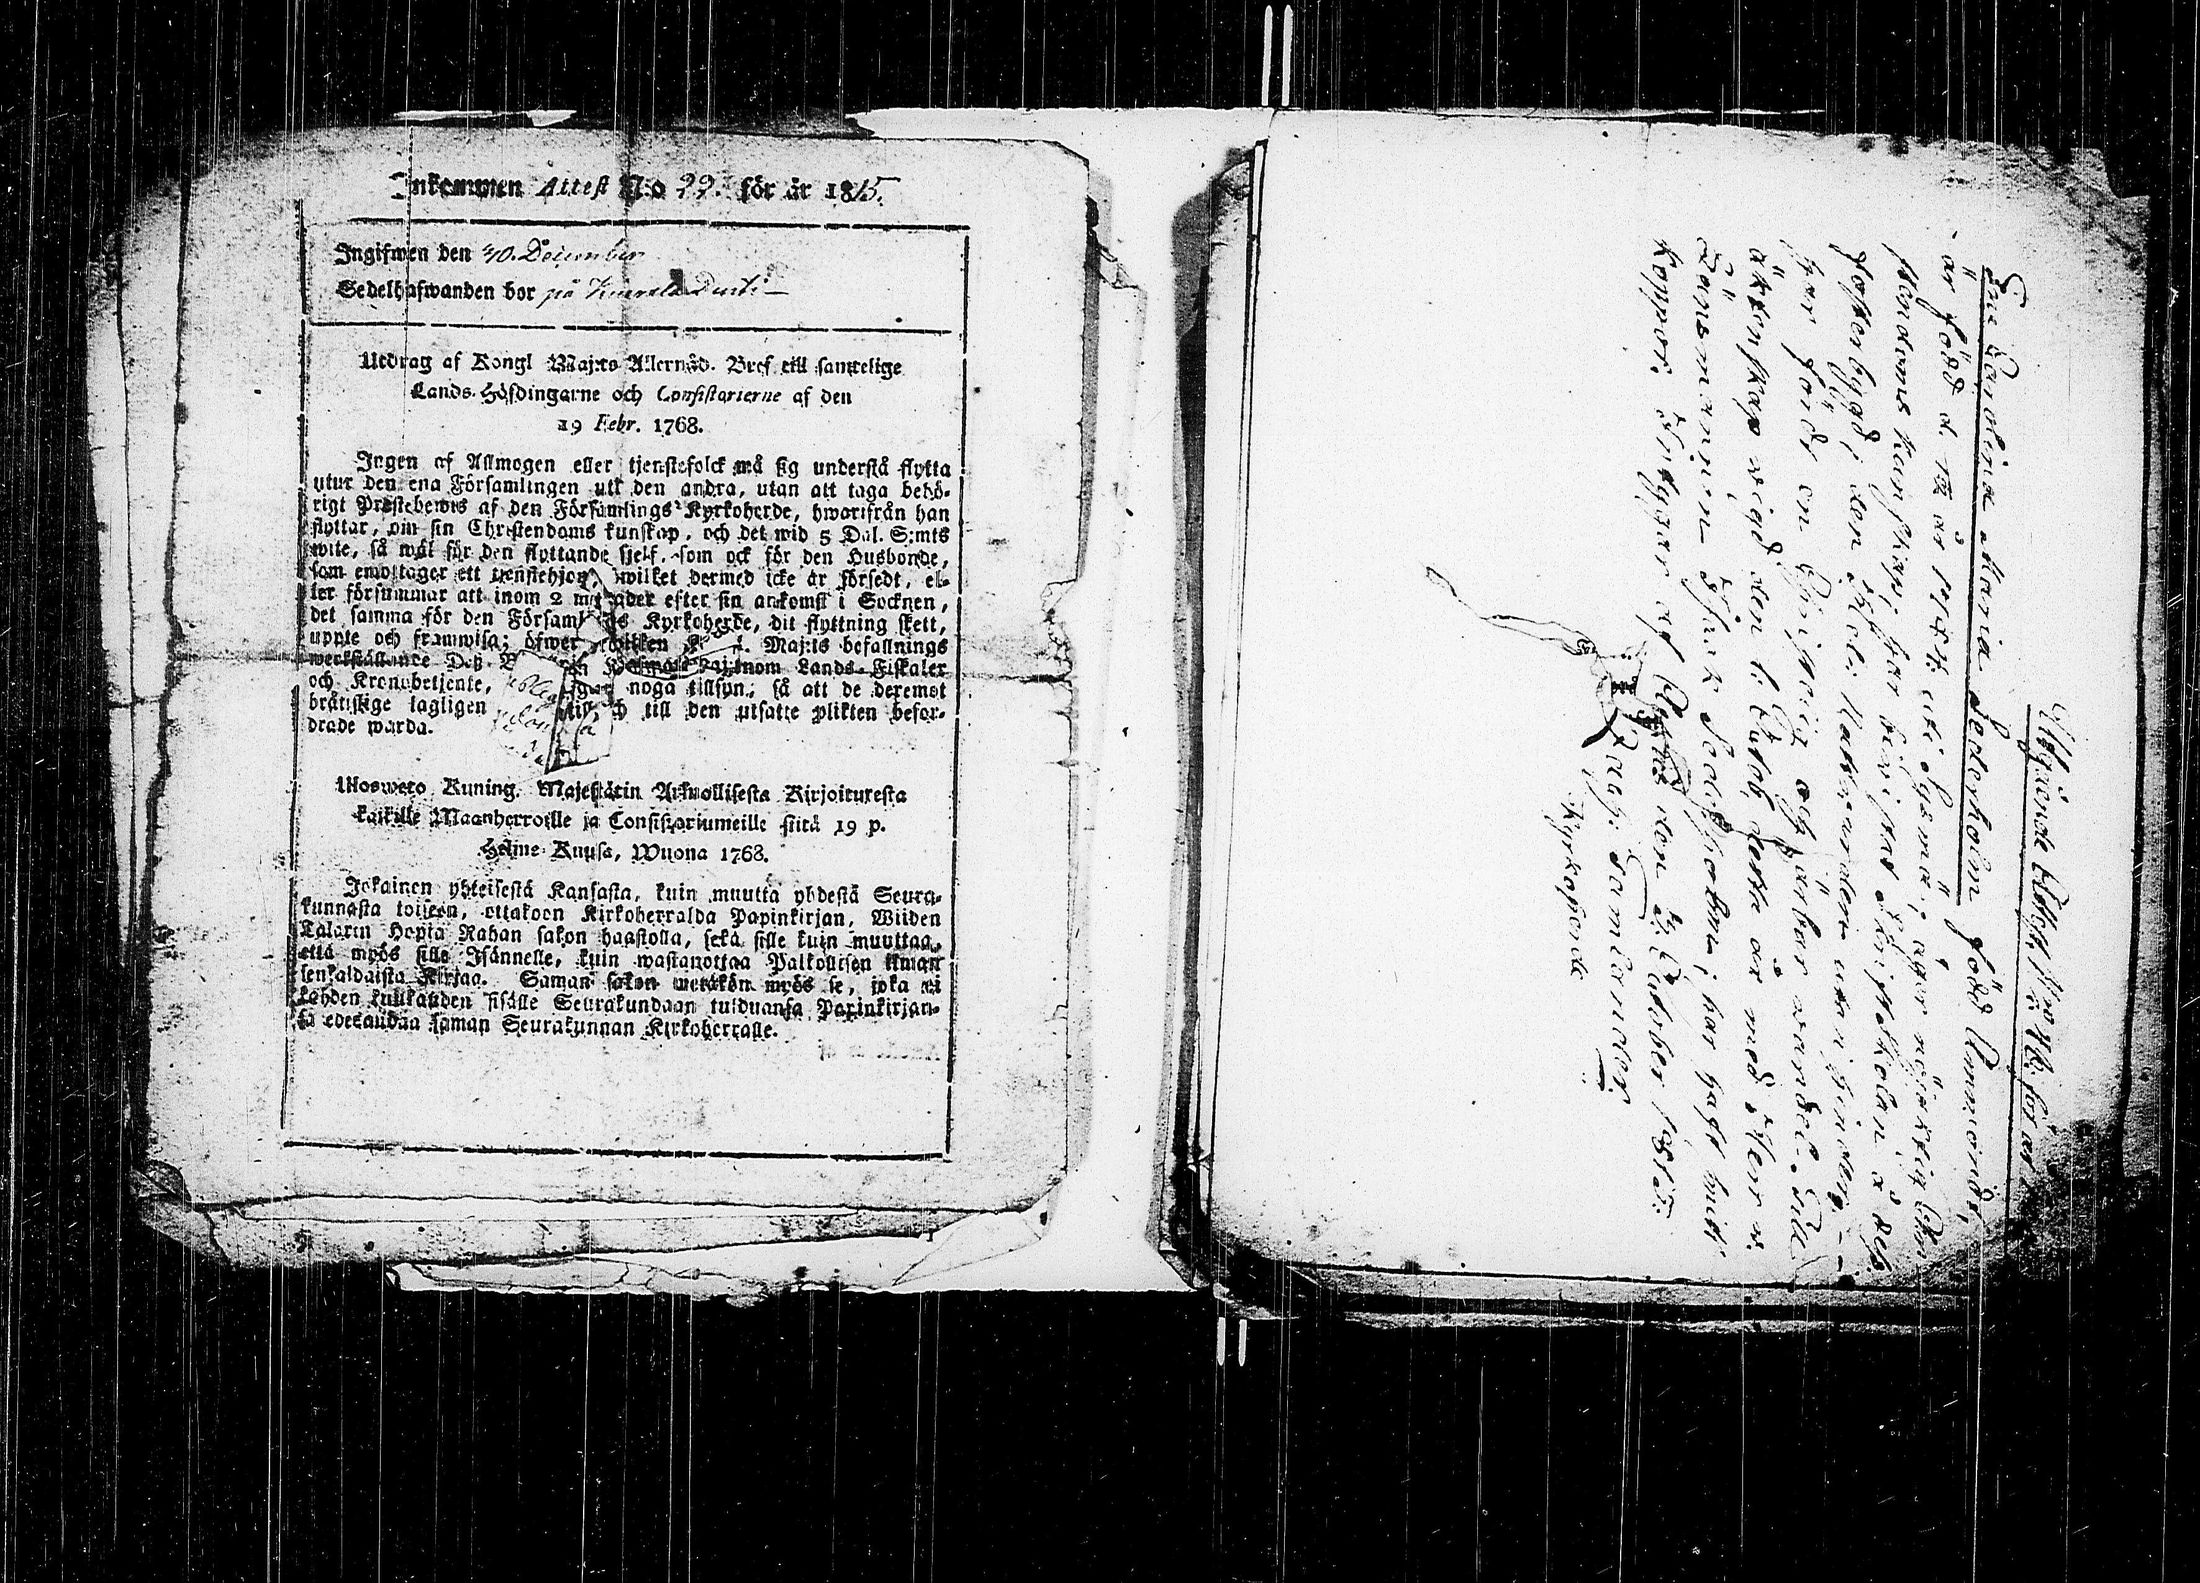 Inkommen Attest N:o 22. för år 1815.
Ingifwen den 30. December
Sedelhafwanden bor på
Utdrag af Kongl Maj:ts Allernåd. Bref till samtelige
Lands-Höfdingarne och Consistorierne af den
19 Febr. 1768.
Ingen af Allmogen eller tjenstefolck må sig understå flytta
utur den ena Församlingen uti den andra, utan att taga behö-
rigt Prestebewis af den Församlings Kyrkoherde, hwarifrån han
flyttar, om sin Christendoms kunskap, och det wid 5 Dal. S:mts
wite, så wäl för den flyttande sjelf, som ock för den Husbonde,
som emottager ett tjenstehjon, hwilket dermed icke är försedt, el-
ler försummar att inom 2 månader efter sin ankomst i Socknen,
det samma för den Församlings Kyrkoherde, dit flyttning skett,
uppte och framwisa; öfwer hwilken Maj:ts befallnings
werkställande Deß genom Lands-Fiskaler
och Kronobetjente, noga tillsyn, så att de deremot
brättslige lagligen och till den utsatte plikten befor-
drade warda.
Ulosweto Kuning. Majestätin Armollisesta Kirjoituresta
kaikille Maanherroille ja Consistoriumeille siitä 19 p.
Helme-Kuusa, Wuona 1768.
Jokainen yhteisestä Kansasta, kuin muutta yhdestä Seura-
kunnasta toiseen, ottakoon Kirkoherralda Papinkirjan, Wiiden
Talarin Hopia Rahan sakon haastolla, sekä sille kuin muuttaa,
että myös sille Isännelle, kuin wastanottaa Palkollisen ilman
senkaldaista Kirjaa. Saman sakon wetäkön myös se, joka ei
kahden kuukauden sisälle Seurakundaan tulduansa Papinkirjan-
sa edesandaa saman Seurakunnan Kirkoherralle.
Afgående Attest N:o för år
Enk. Carolina Maria Sederholm född Ammondt,
är född d. uti ; äger nöjaktig Chri-
stendoms kunskap; har bewistat Skriftskolan å deß
fosterbygd; den Hel. Nattvarden utan hinder -
har fördt en Christelig och ärbar vandel. Sitt
äktenskap
Länsmannen Isaak Sederholm; har haft
koppor. Intygar af den October 1815.
Zach: Familoander
Kyrkoherde